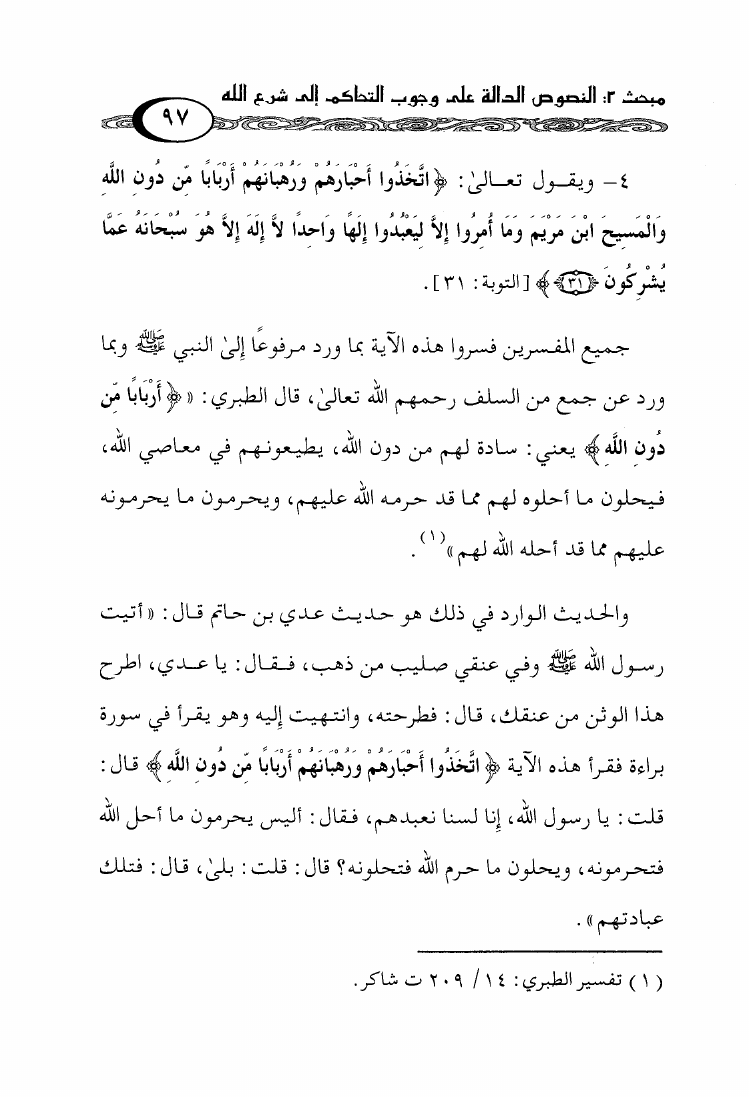 مبحث ٢: النصوص الدالة على وجوب التحاكم إلى شرع الله
٩٧
٤- ويقول تعالىٰ: ﴿اتَّخَذُوا أَحْبَارَهُمْ وَرُهْبَانَهُمْ أَرْبَابًا مِّن دُونِ اللَّهِ
وَالْمَسِيحَ ابْنَ مَرْيَمَ وَمَا أُمِرُوا إِلاَّ لِيَعْبُدُوا إِلَهًا وَاحِدًا لاَّ إِلَهَ إِلاَّ هُوَ سُبْحَانَهُ عَمَّا
يُشْرِكُونَ ﴿٣١﴾﴾ [التوبة: ٣١].
جميع المفسرين فسروا هذه الآية بما ورد مرفوعًا إلىٰ النبي ﷺ وبما
ورد عن جمع من السلف رحمهم الله تعالىٰ، قال الطبري: «﴿أَرْبَابًا مِّن
دُونِ اللَّهِ﴾ يعني: سادة لهم من دون الله، يطيعونهم في معاصي الله،
فيحلون ما أحلوه لهم مما قد حرمه الله عليهم، ويحرمون ما يحرمونه
عليهم مما قد أحله الله لهم»(١).
والحديث الوارد في ذلك هو حديث عدي بن حاتم قال: «أتيت
رسول الله ﷺ وفي عنقي صليب من ذهب، فقال: يا عدي، اطرح
هذا الوثن من عنقك، قال: فطرحته، وانتهيت إليه وهو يقرأ في سورة
براءة فقرأ هذه الآية ﴿اتَّخَذُوا أَحْبَارَهُمْ وَرُهْبَانَهُمْ أَرْبَابًا مِّن دُونِ اللَّهِ﴾ قال:
قلت: يا رسول الله، إنا لسنا نعبدهم، فقال: أليس يحرمون ما أحل الله
فتحرمونه، ويحلون ما حرم الله فتحلونه؟ قال: قلت: بلىٰ، قال: فتلك
عبادتهم».
(١) تفسير الطبري: ١٤/ ٢٠٩ ت شاكر.